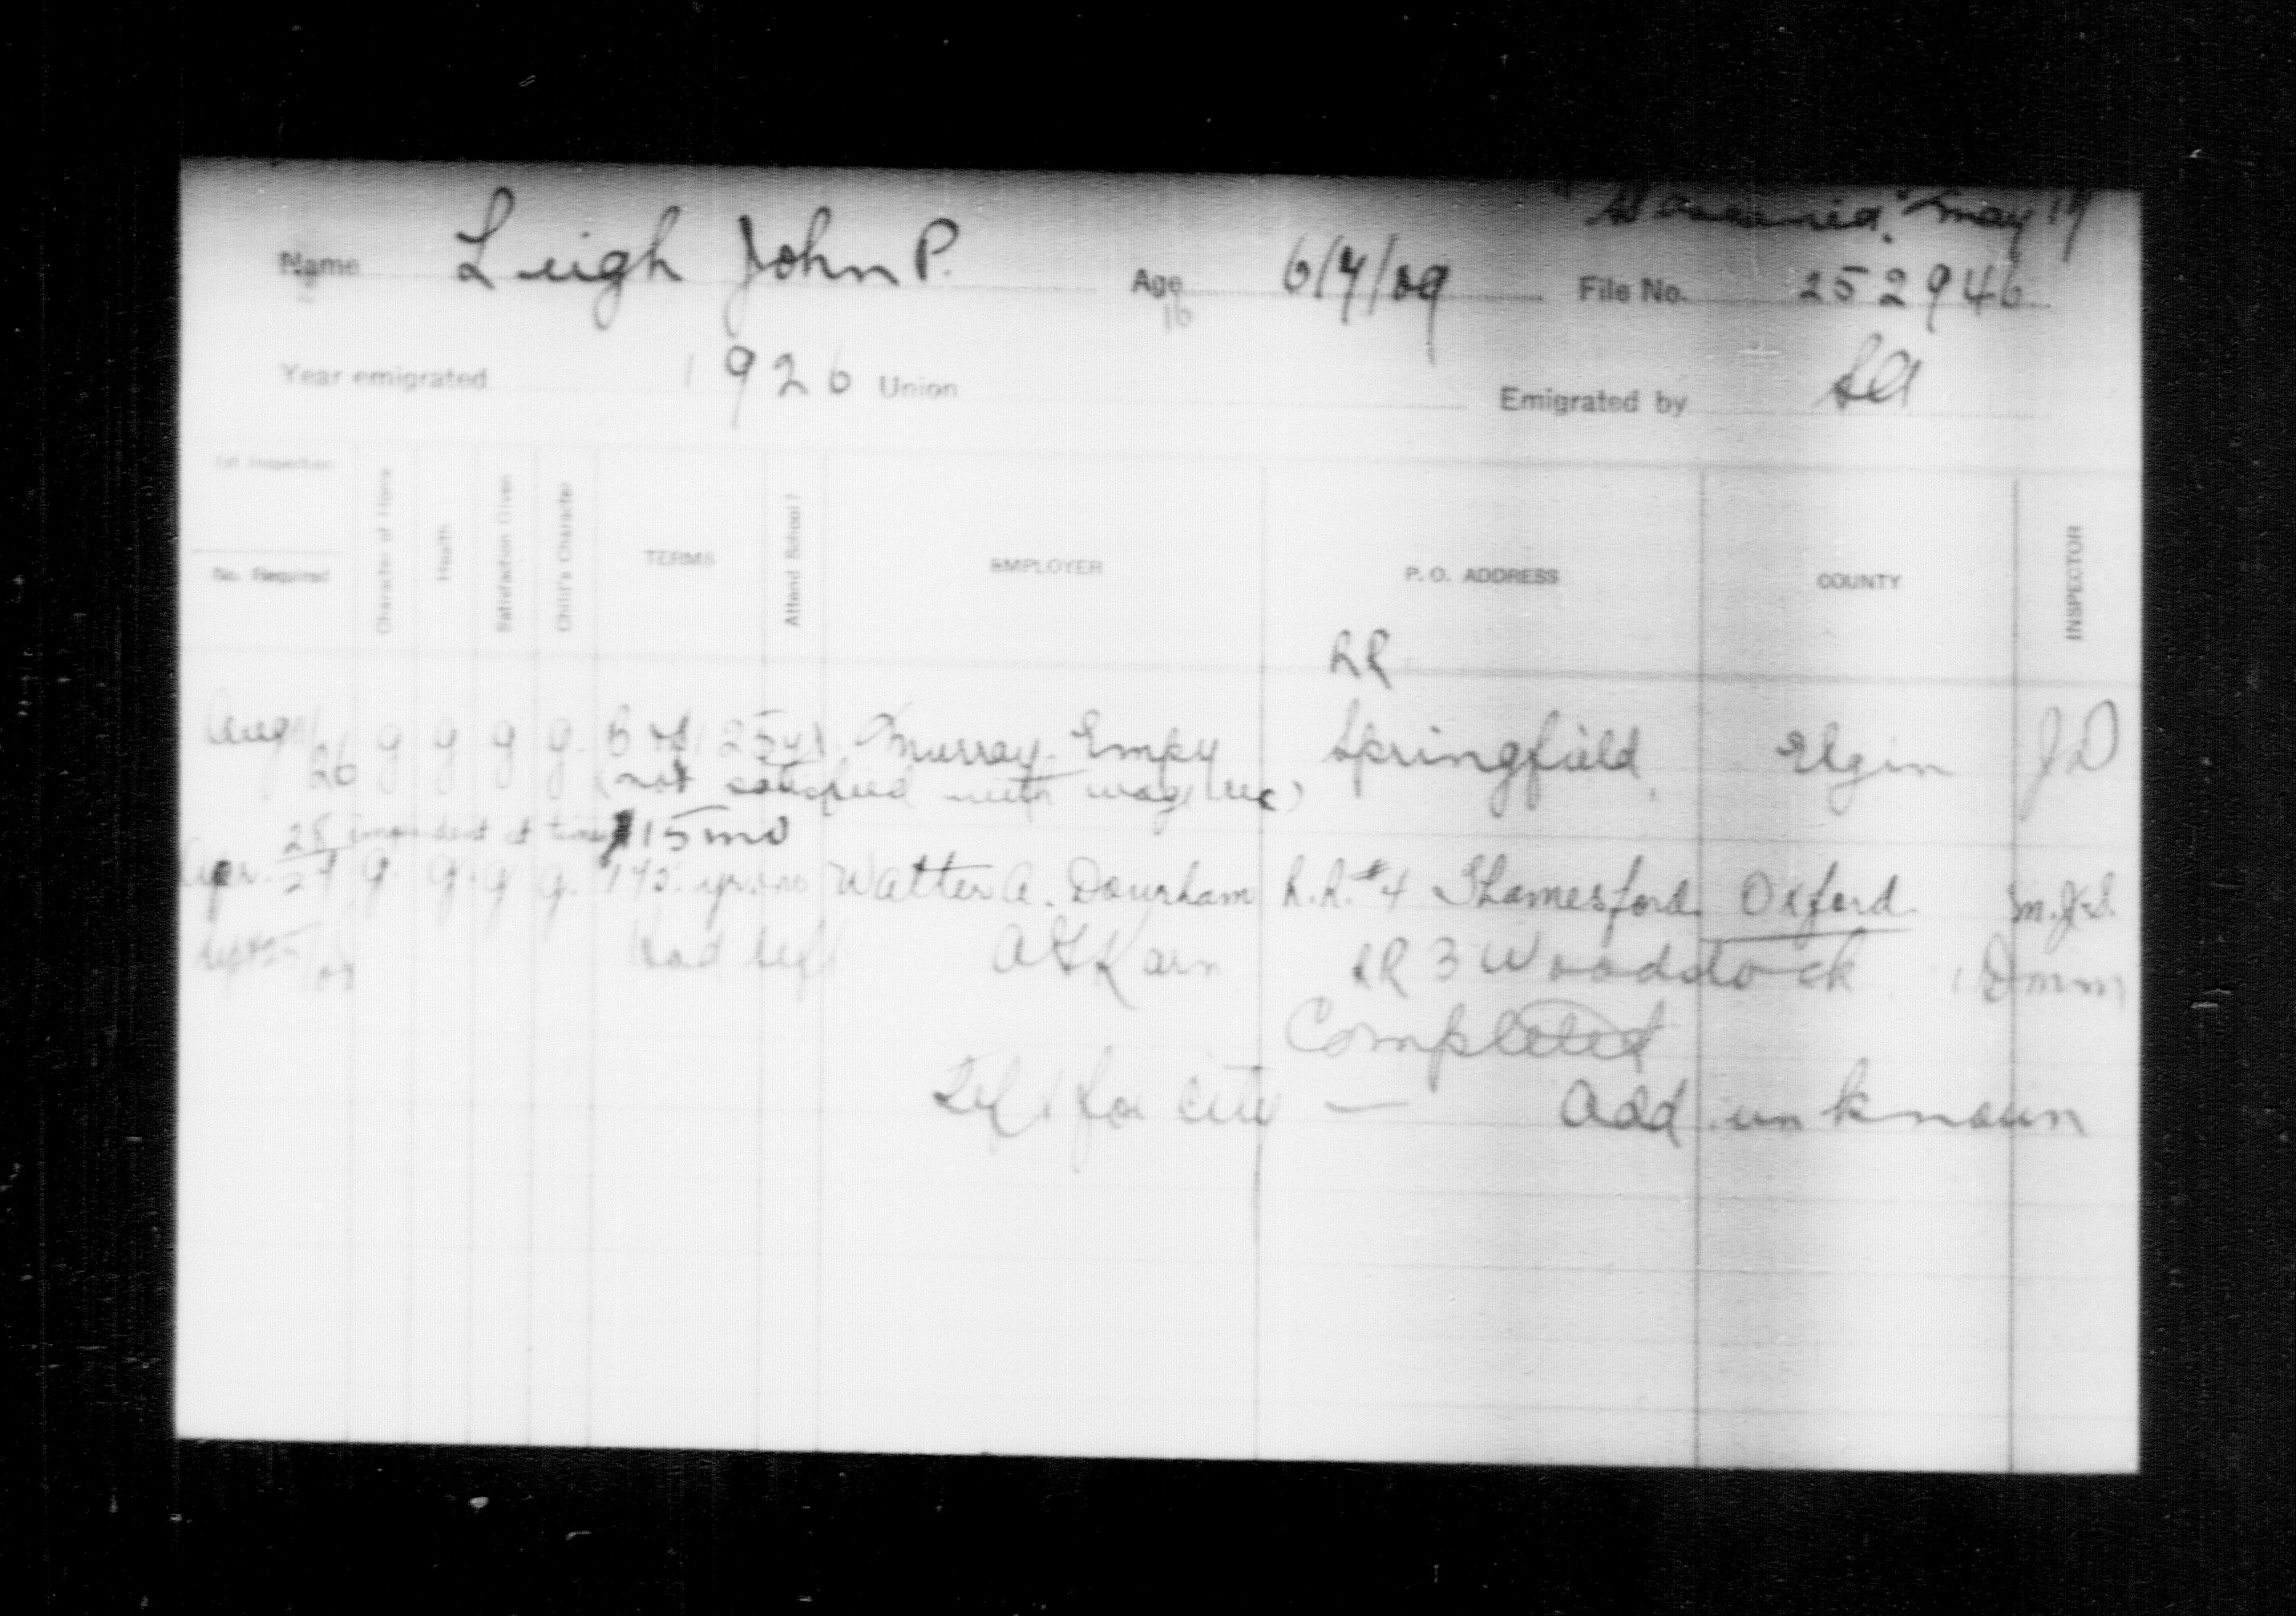 May 19
Name Leigh John P. Age 6/4/09 File No. 252946
16
Year emigrated 1926 Union Emigrated by SA
1st Inspection
No. Required
Character of Home
Health
Satisfaction Given
Child's Character
TERMS
Attend School?
EMPLOYER
P. O. ADDRESS
COUNTY
INSPECTOR
RR
Aug 26 g g g g. Murray Empy Springfield Elgin JD
(not satisfied with wage
28 at times $15 mo
Apr. 27 g. g. g g. 145. yr. no Walter A. Dourham R.R. #4 Thamesford Oxford
Sept 25 Had left Karn RR 3 Woodstock
Completed
Left for city — Add unknown